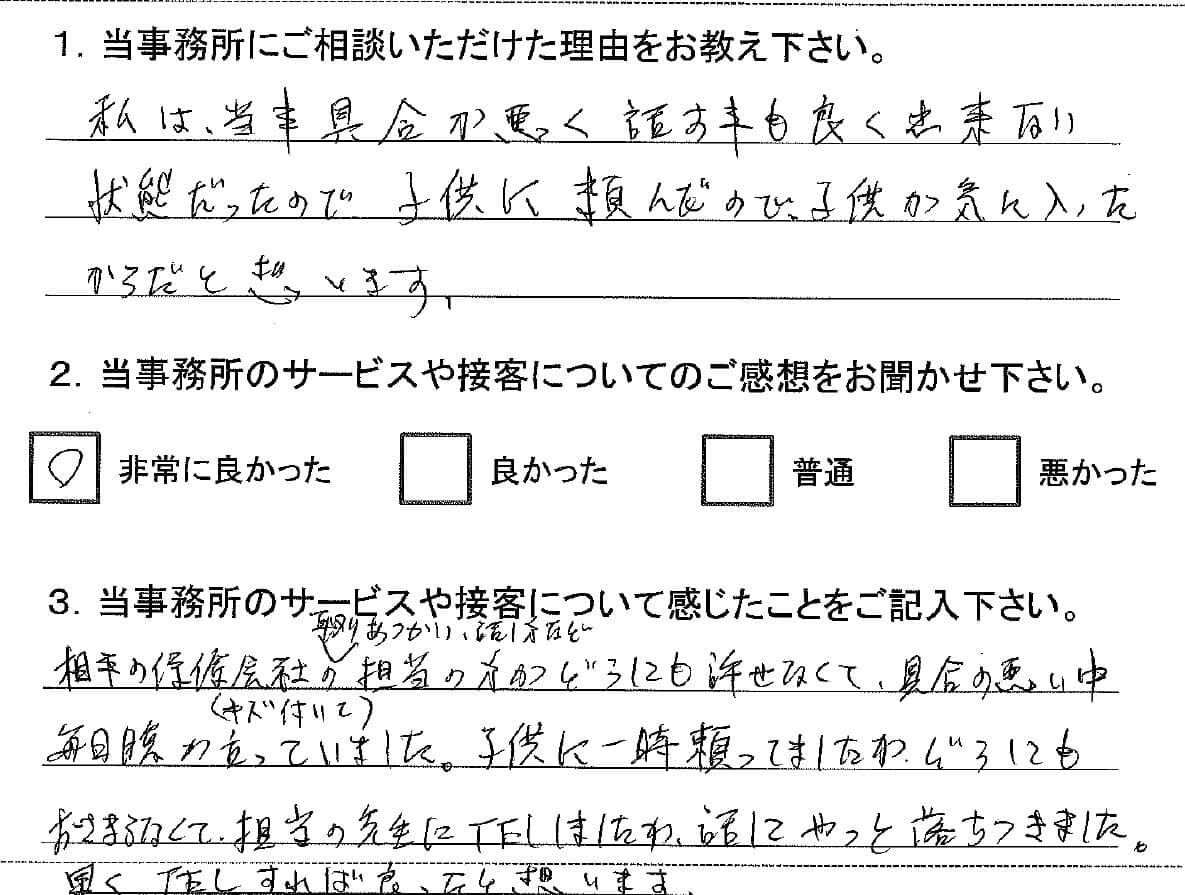 1. 当事務所にご相談いただけた理由をお教え下さい。
私は、当車具合が悪っく話す事も良く出来ない
状態だったので 子供に 頼んだので、子供が気に入った
からだと想います。
2. 当事務所のサービスや接客についてのご感想をお聞かせ下さい。
〇 非常に良かった 良かった 普通 悪かった
3. 当事務所のサービスや接客について感じたことをご記入下さい。
取りあつかい、話し方など
相手の保険会社の担当の方がどうにも許せなくて、具合の悪い中
(キズ付いて)
毎日腹が立っていました。子供に一時頼ってましたが、どうにも
おさまらなくて、担当の先生にTELしましたが、話してやっと落ちつきました。
早くTELすれば良かったと想います。